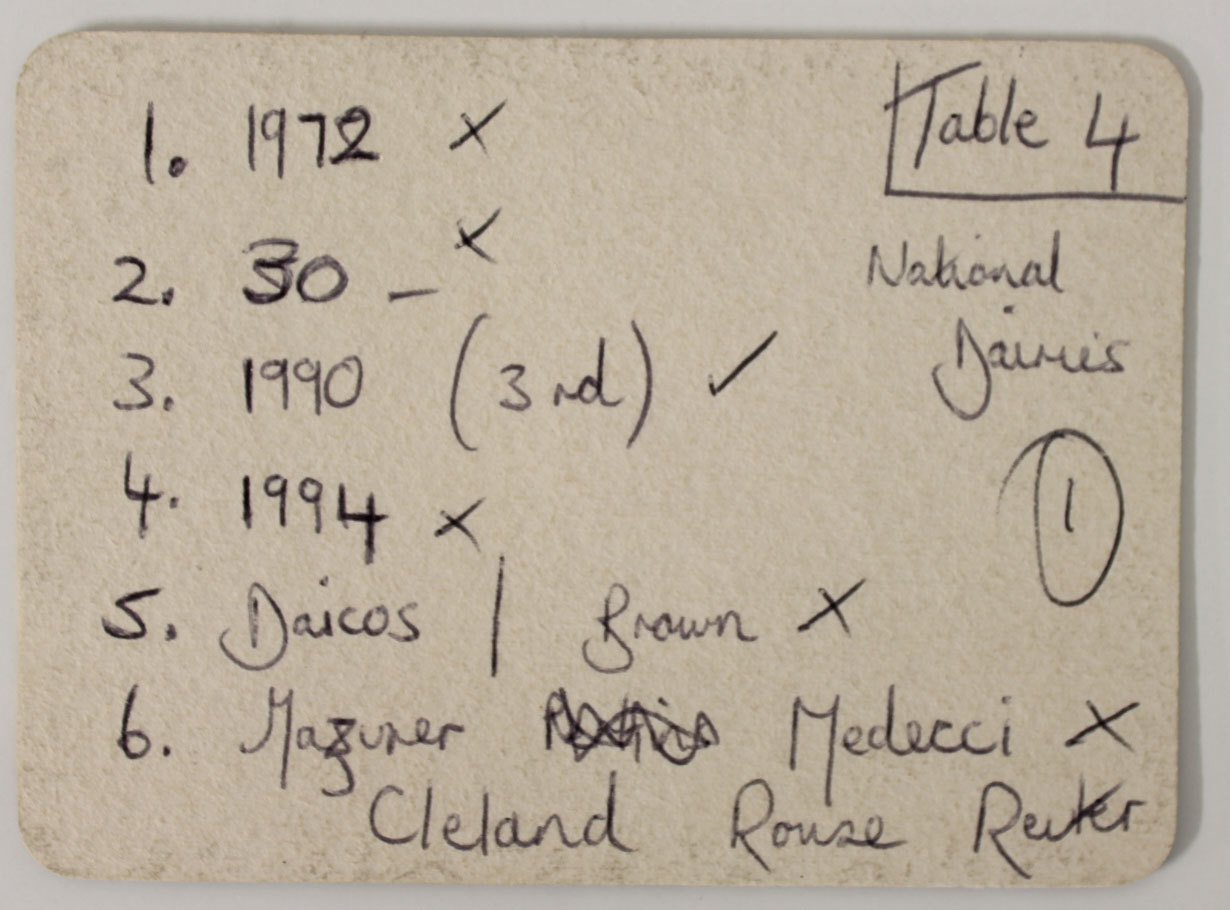 Table 4
National
Dairies
1
1. 1972 x
2. 30 – x
3. 1990 (3rd) ✓
4. 1994 x
5. Daicos / Brown x
6. Mazurer Medecci x
Cleland Rouse Reuter